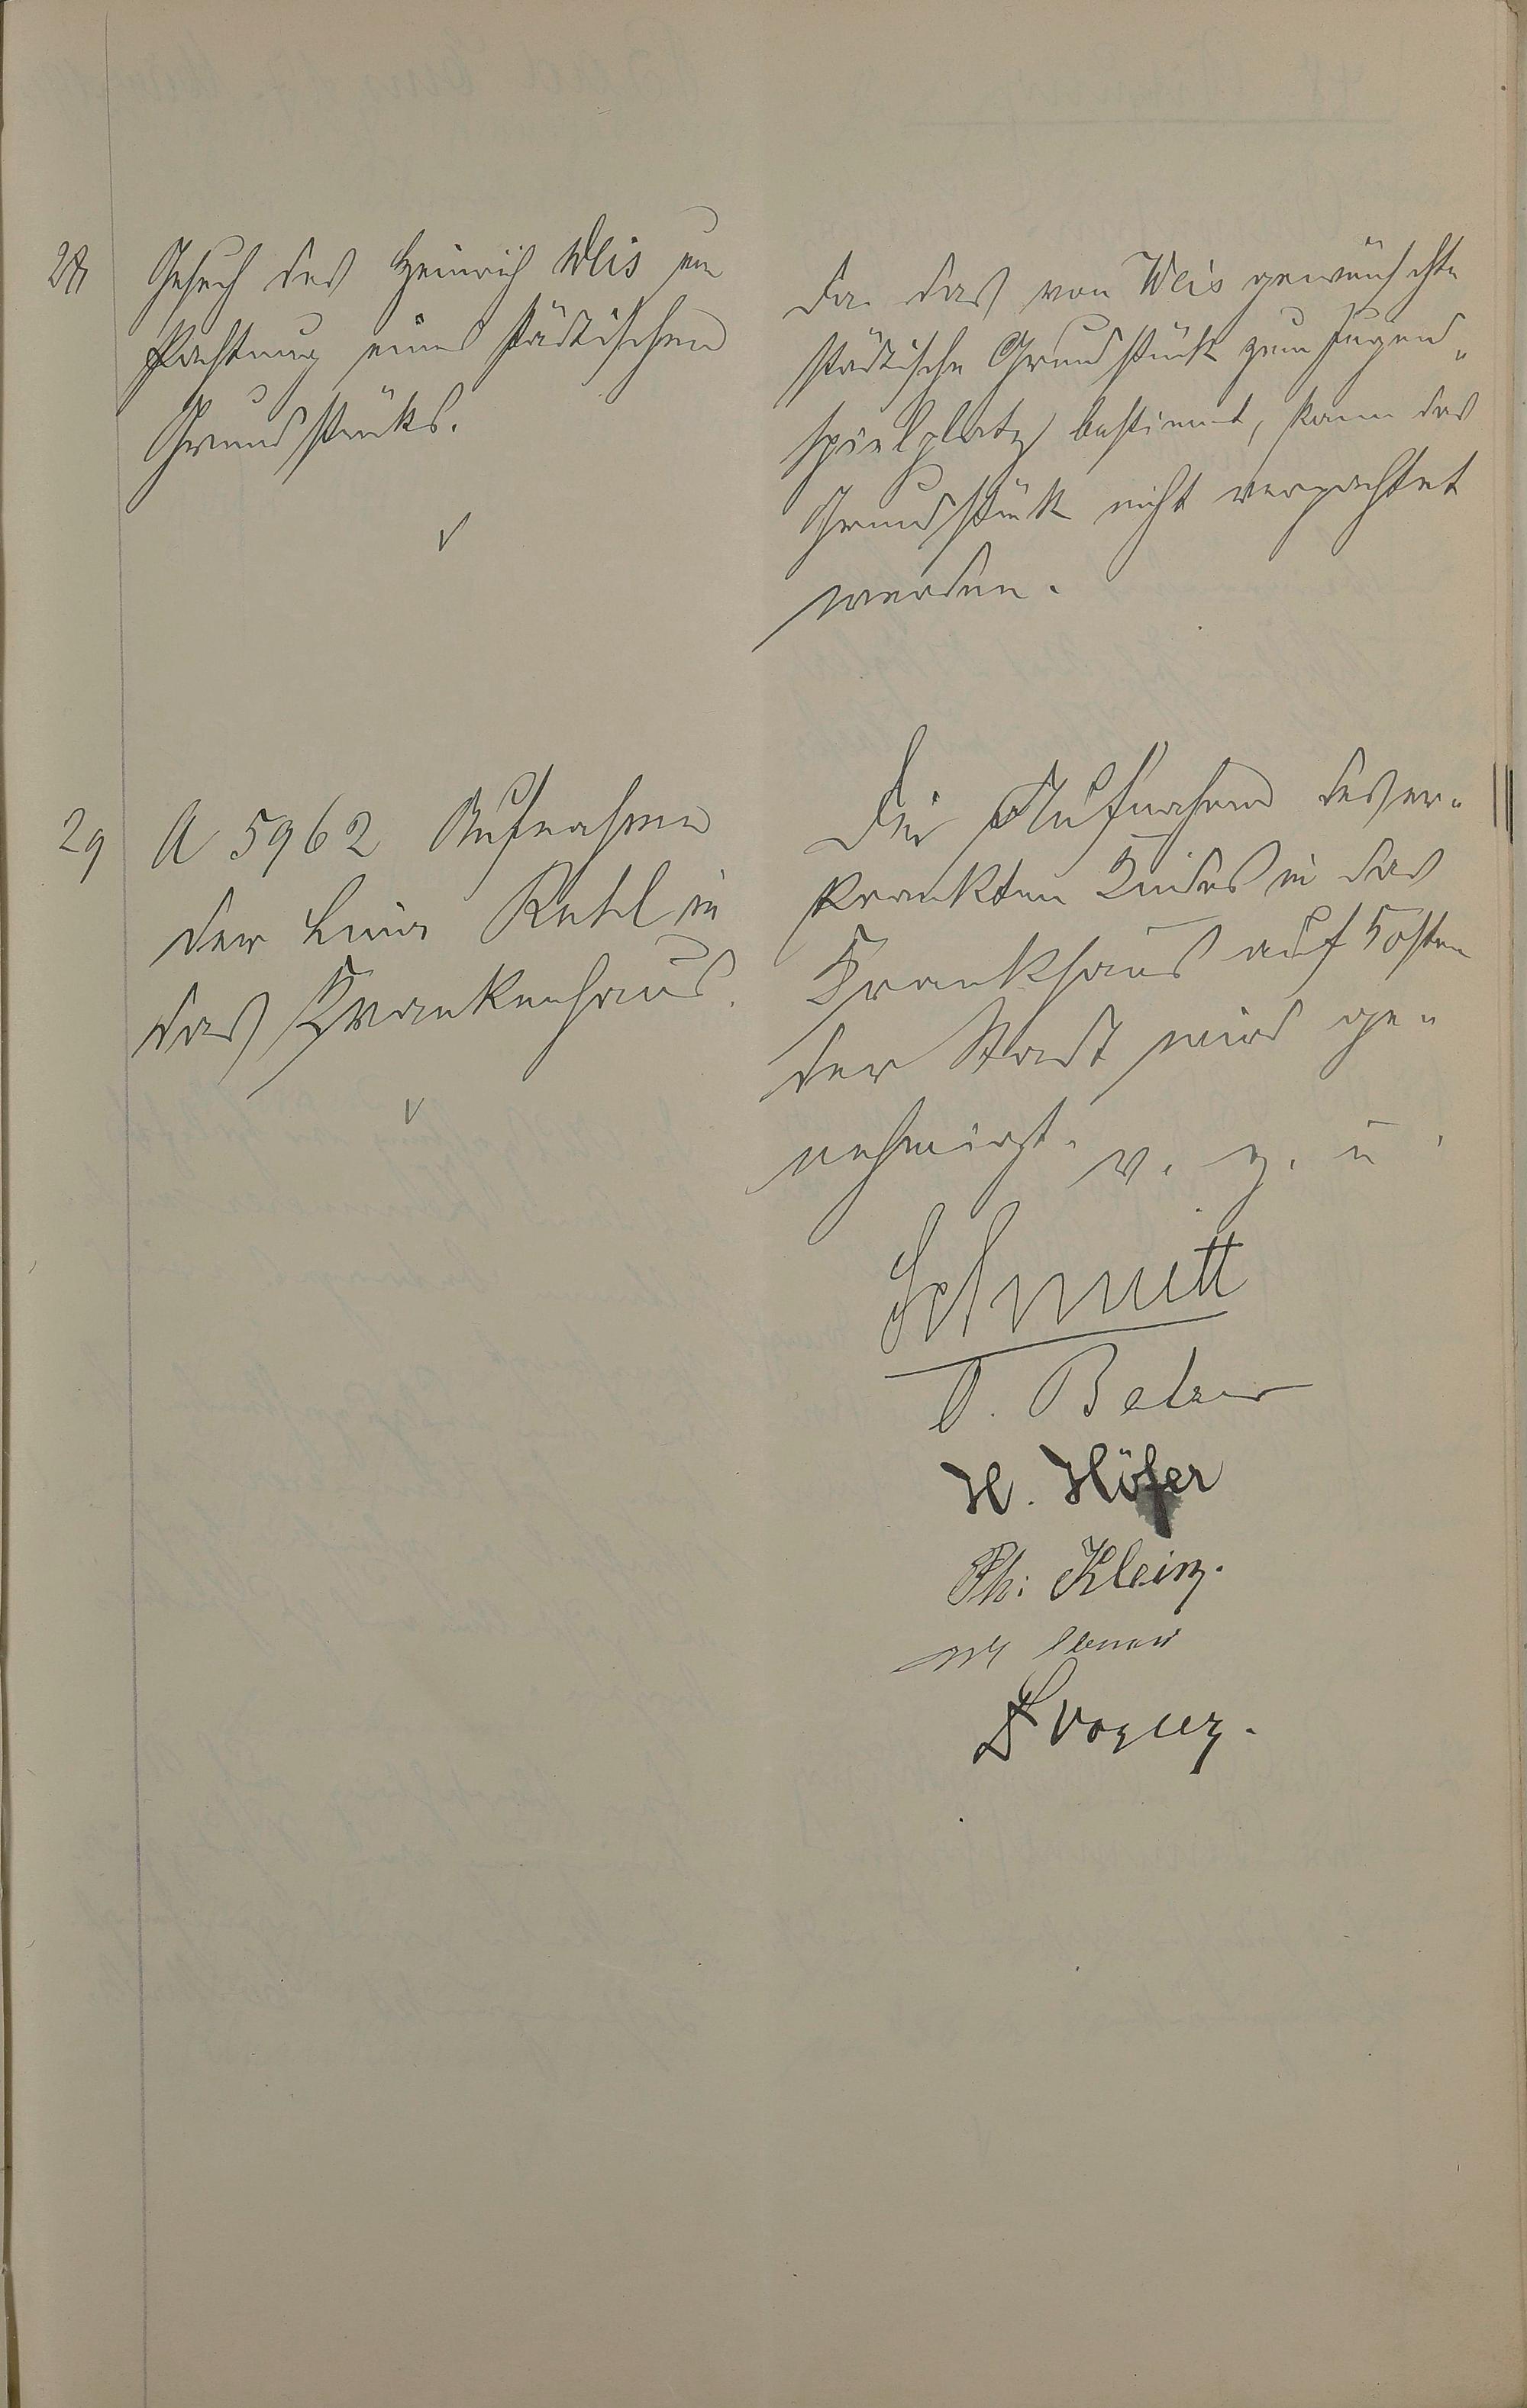 28
Gesuch des Heinrich Weis um
Pachtung eines städtischen
Grundstücks.
Da das von Weis gewünschte
städtische Grundstück zum Jugend-
spielplatz bestimmt, kann das
Grundstück nicht verpachtet
werden.
29
A 5962 Aufnahme
der Lina Rehl in
das Krankenhaus.
Die Aufnahme des er-
krankten Kindes in das
Krankhaus auf Kosten
der Stadt wird ge-
nehmigt. v. g. u.
Schmitt
H. Höfer
Ph: Klein.